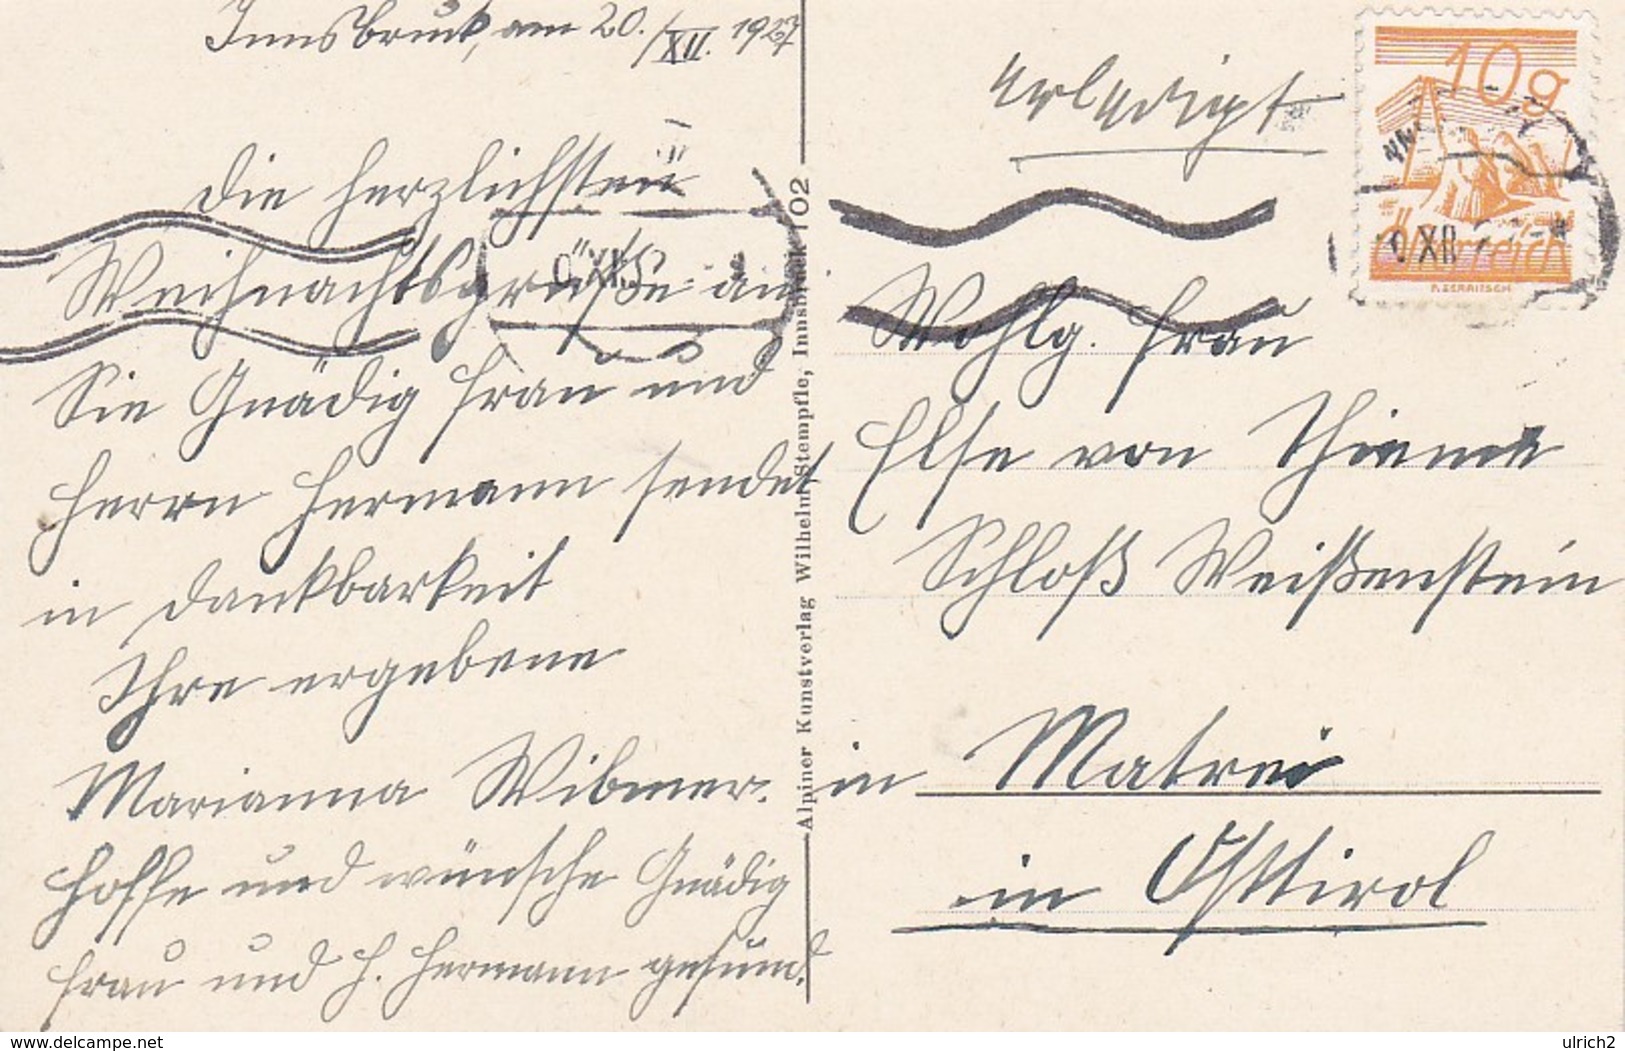 Innsbruck, am 20./XII. 1927
Die herzlichsten
Weihnachtsgrüße an
Sie Gnädig Frau und
Herrn Hermann sendet
in Dankbarkeit
Ihre ergebene
Marianna Wibmer.
Hoffe und wünsche Gnädig
Frau und H. Hermann gesund.
Alpiner Kunstverlag Wilhelm Stempfle, Innsbruck 102
erledigt
10g
Österreich
Wohlg. Frau
Else von Thieme
Schloß Weißenstein
in Matrei
in Osttirol
www.delcampe.net
ulrich2